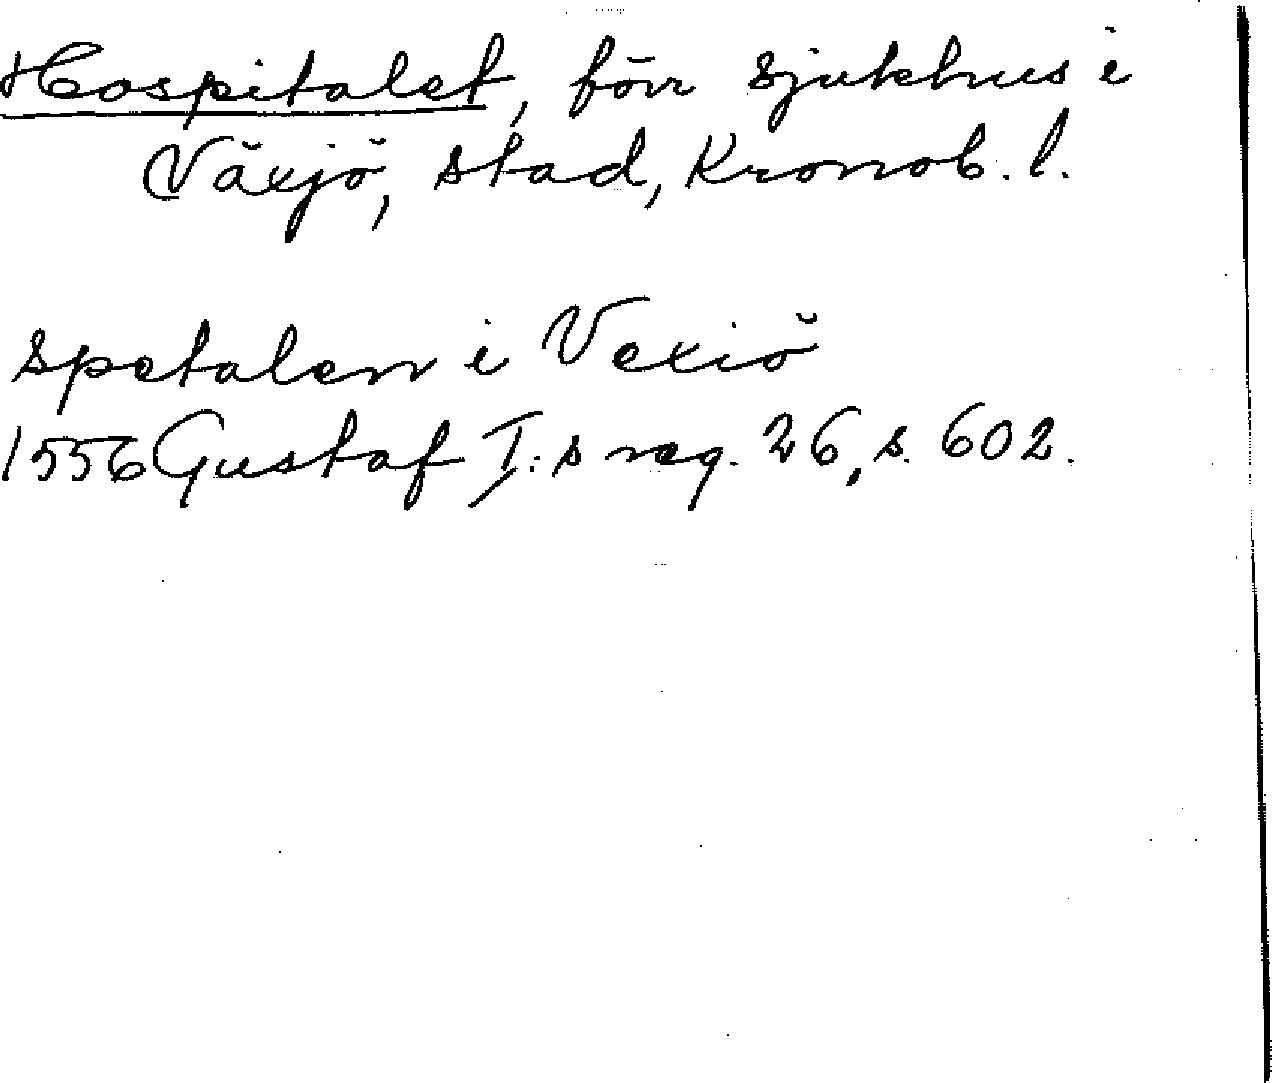 Hospitalet, förr sjukhus i
Växjö, stad, Kronob. l.
spetalen i Vexiö
1556 Gustaf I:s reg. 26, s. 602.